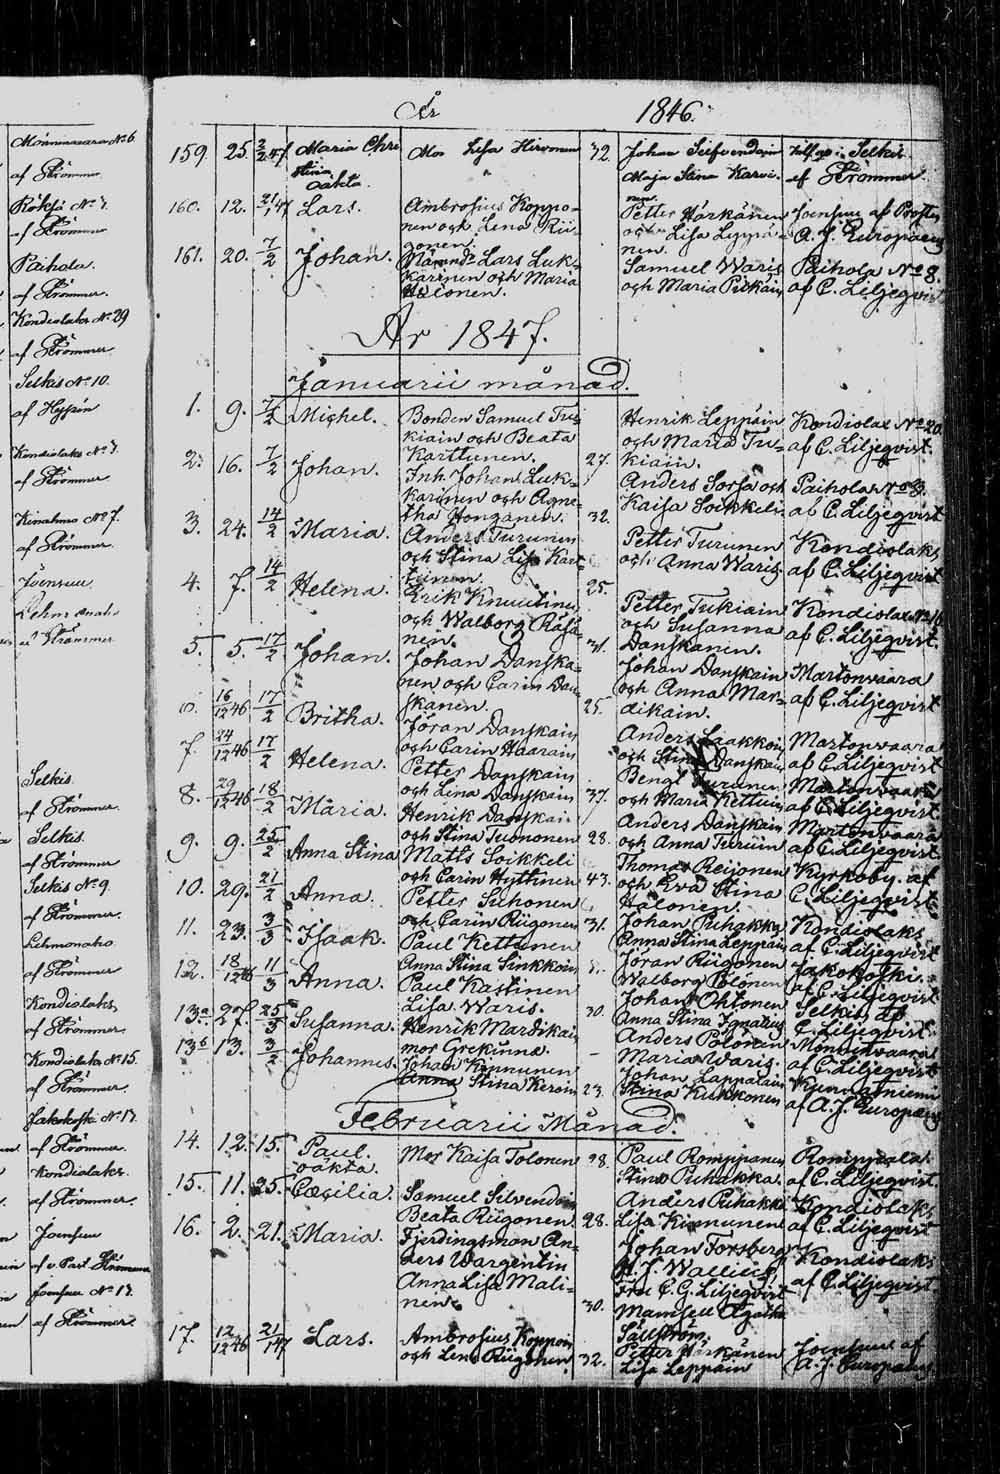 Monninvaara No 6
af Strömmer
Röksä No 7.
af Strömmer
Paihola.
af Strömmer.
Kondiolaks No 29
af Strömmer
Selkis No 10.
af Hyppén
Kondiolaks No 7.
af Strömmer
No 7.
af Strömmer.
Joensuu
af Strömmer
Selkis.
af Strömmer.
Selkis.
af Strömmer
Selkis No 9.
af Strömmer.
Lehmonaho
af Strömmer
Kondiolaks
af Strömmer
Kondiolaks No 15.
af Strömmer
Jakokoski No 17.
af Strömmer.
Kondiolaks
af Strömmer.
Joensuu
af v. Past. Strömmer
Joensuu No 17.
af Strömmer.
År 1846.
159. 25. 2/2 47 Maria Chri stina oäkta. Mor Lisa Hirvonen 32. Johan Seifvendoin Maja Stina Karvi- nen. i Selkis af Strömmer.
160. 12. 21/1 47 Lars. Ambrosius Koppo- nen och Lena Rii- gonen. Petter Härkänen och Lisa Leppä- nen. Joensuu af Prosten A. J. Europaeus
161. 20. 7/2 Johan. Lars Luk- karinen och Maria Halonen. Samuel Waris och Maria Pitkäin Paihola No 8. af C. Liljeqvist
År 1847.
Januarii månad.
1. 9. 7/2 Michel. Bonden Samuel Tu- kiain och Beata Karttunen. 27. Henrik Leppäin och Maria Tu- kiain. Kondiolax No 20. af C. Liljeqvist.
2. 16. 7/2 Johan. Inh. Johan Luk- karinen och Agne- tha Honganen. 32. Anders Sorsa och Kaisa Soikkeli Paihola No 3. af C. Liljeqvist
3. 24. 14/2 Maria. Anders Turunen och Stina Lisa Kart- tunen. 25. Petter Turunen och Anna Waris Kondiolaks af C. Liljeqvist
4. 7. 14/2 Helena. Erik Knuutinen och Walborg Räsä- nen. 31. Petter Tukiain och Susanna Danskanen. Kondiolax No 16 af C. Liljeqvist.
5. 5. 17/2 Johan. Johan Danska- nen och Carin Dan- skanen. 25. Johan Danskain och Anna Mar- dikain. Martonvaara af C. Liljeqvist
6. 16/12 46 17/2 Britha. Jöran Danskain och Carin Haarain Anders Laakkoin och Stina Danskain Martonvaara af C. Liljeqvist
7. 24/12 46 17/2 Helena. Petter Danskain och Lena Danskain 37. Bengt Turunen och Maria Kettuin Martonvaara af C. Liljeqvist.
8. 29/12 46 18/2 Maria. Henrik Danskain och Stina Suononen 28. Anders Danskain och Anna Turuin Martonvaara af C. Liljeqvist.
9. 9. 25/2 Anna Stina Matts Soikkeli och Carin Hyttinen 43. Thomas Reijonen och Eva Stina Halonen. Kyrkoby. af C. Liljeqvist
10. 29. 21/2 Anna. Petter Suhonen och Carin Riigonen 31. Johan Puhakka Anna Stina Leppäin Kondiolaks af C. Liljeqvist
11. 23. 3/3 Isaak. Paul Kettunen Anna Stina Sinkkoin Jöran Riigonen Walborg Polönen Jakokoski. af C. Liljeqvist
12. 18/12 46 11/3 Anna. Paul Kastinen Lisa Waris. 30. Johan Ohtonen Anna Stina Ignatius Selkis af C. Liljeqvist
13a. 27. 25/3 Susanna. Henrik Mardikai mor Grekinna. - Anders Polönen Maria Waris. Monnivaara af C. Liljeqvist.
13b 13. 3/2 Johannes. Johan Kinnunen Anna Stina Keroin 23. Johan Lappalain Stina Kukkonen Kunnasniemi af A. J. Europaeus
Februarii Månad.
14. 12. 15. Paul. oäkta. Mor Kaisa Tolonen 28. Paul Romppanen Stina Puhakka. Romppala. af C. Liljeqvist.
15. 11. 25. Cæcilia. Samuel Silvendoin Beata Riigonen 28. Anders Puhakka Lisa Kinnunen Kondiolaks af C. Liljeqvist
16. 2. 21. Maria. Fjerdingsman An- ders Wargentin Anna Lisa Mali- nen. 30. Johan Forsberg H. J. Wallius, Fru C. G. Liljeqvist Mamsell Agatha Sällström. Kondiolaks af C. Liljeqvist
17. 12/12 46 21/1 47 Lars. Ambrosius Koppoin och Lena Riigonen 32. Petter Härkänen Lisa Leppäin Joensuu af A. J. Europaeus.